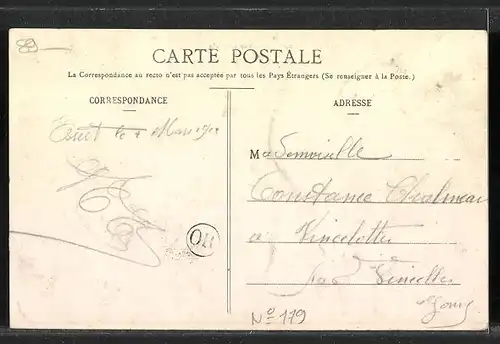 CARTE POSTALE
La Correspondance au recto n'est pas acceptée par tous les Pays Étrangers (Se renseigner à la Poste.)
CORRESPONDANCE
ADRESSE
le 1 Mars
OR
Mademoiselle
Constance
a Vincelottes
par Vincelles
Yonne
No 119